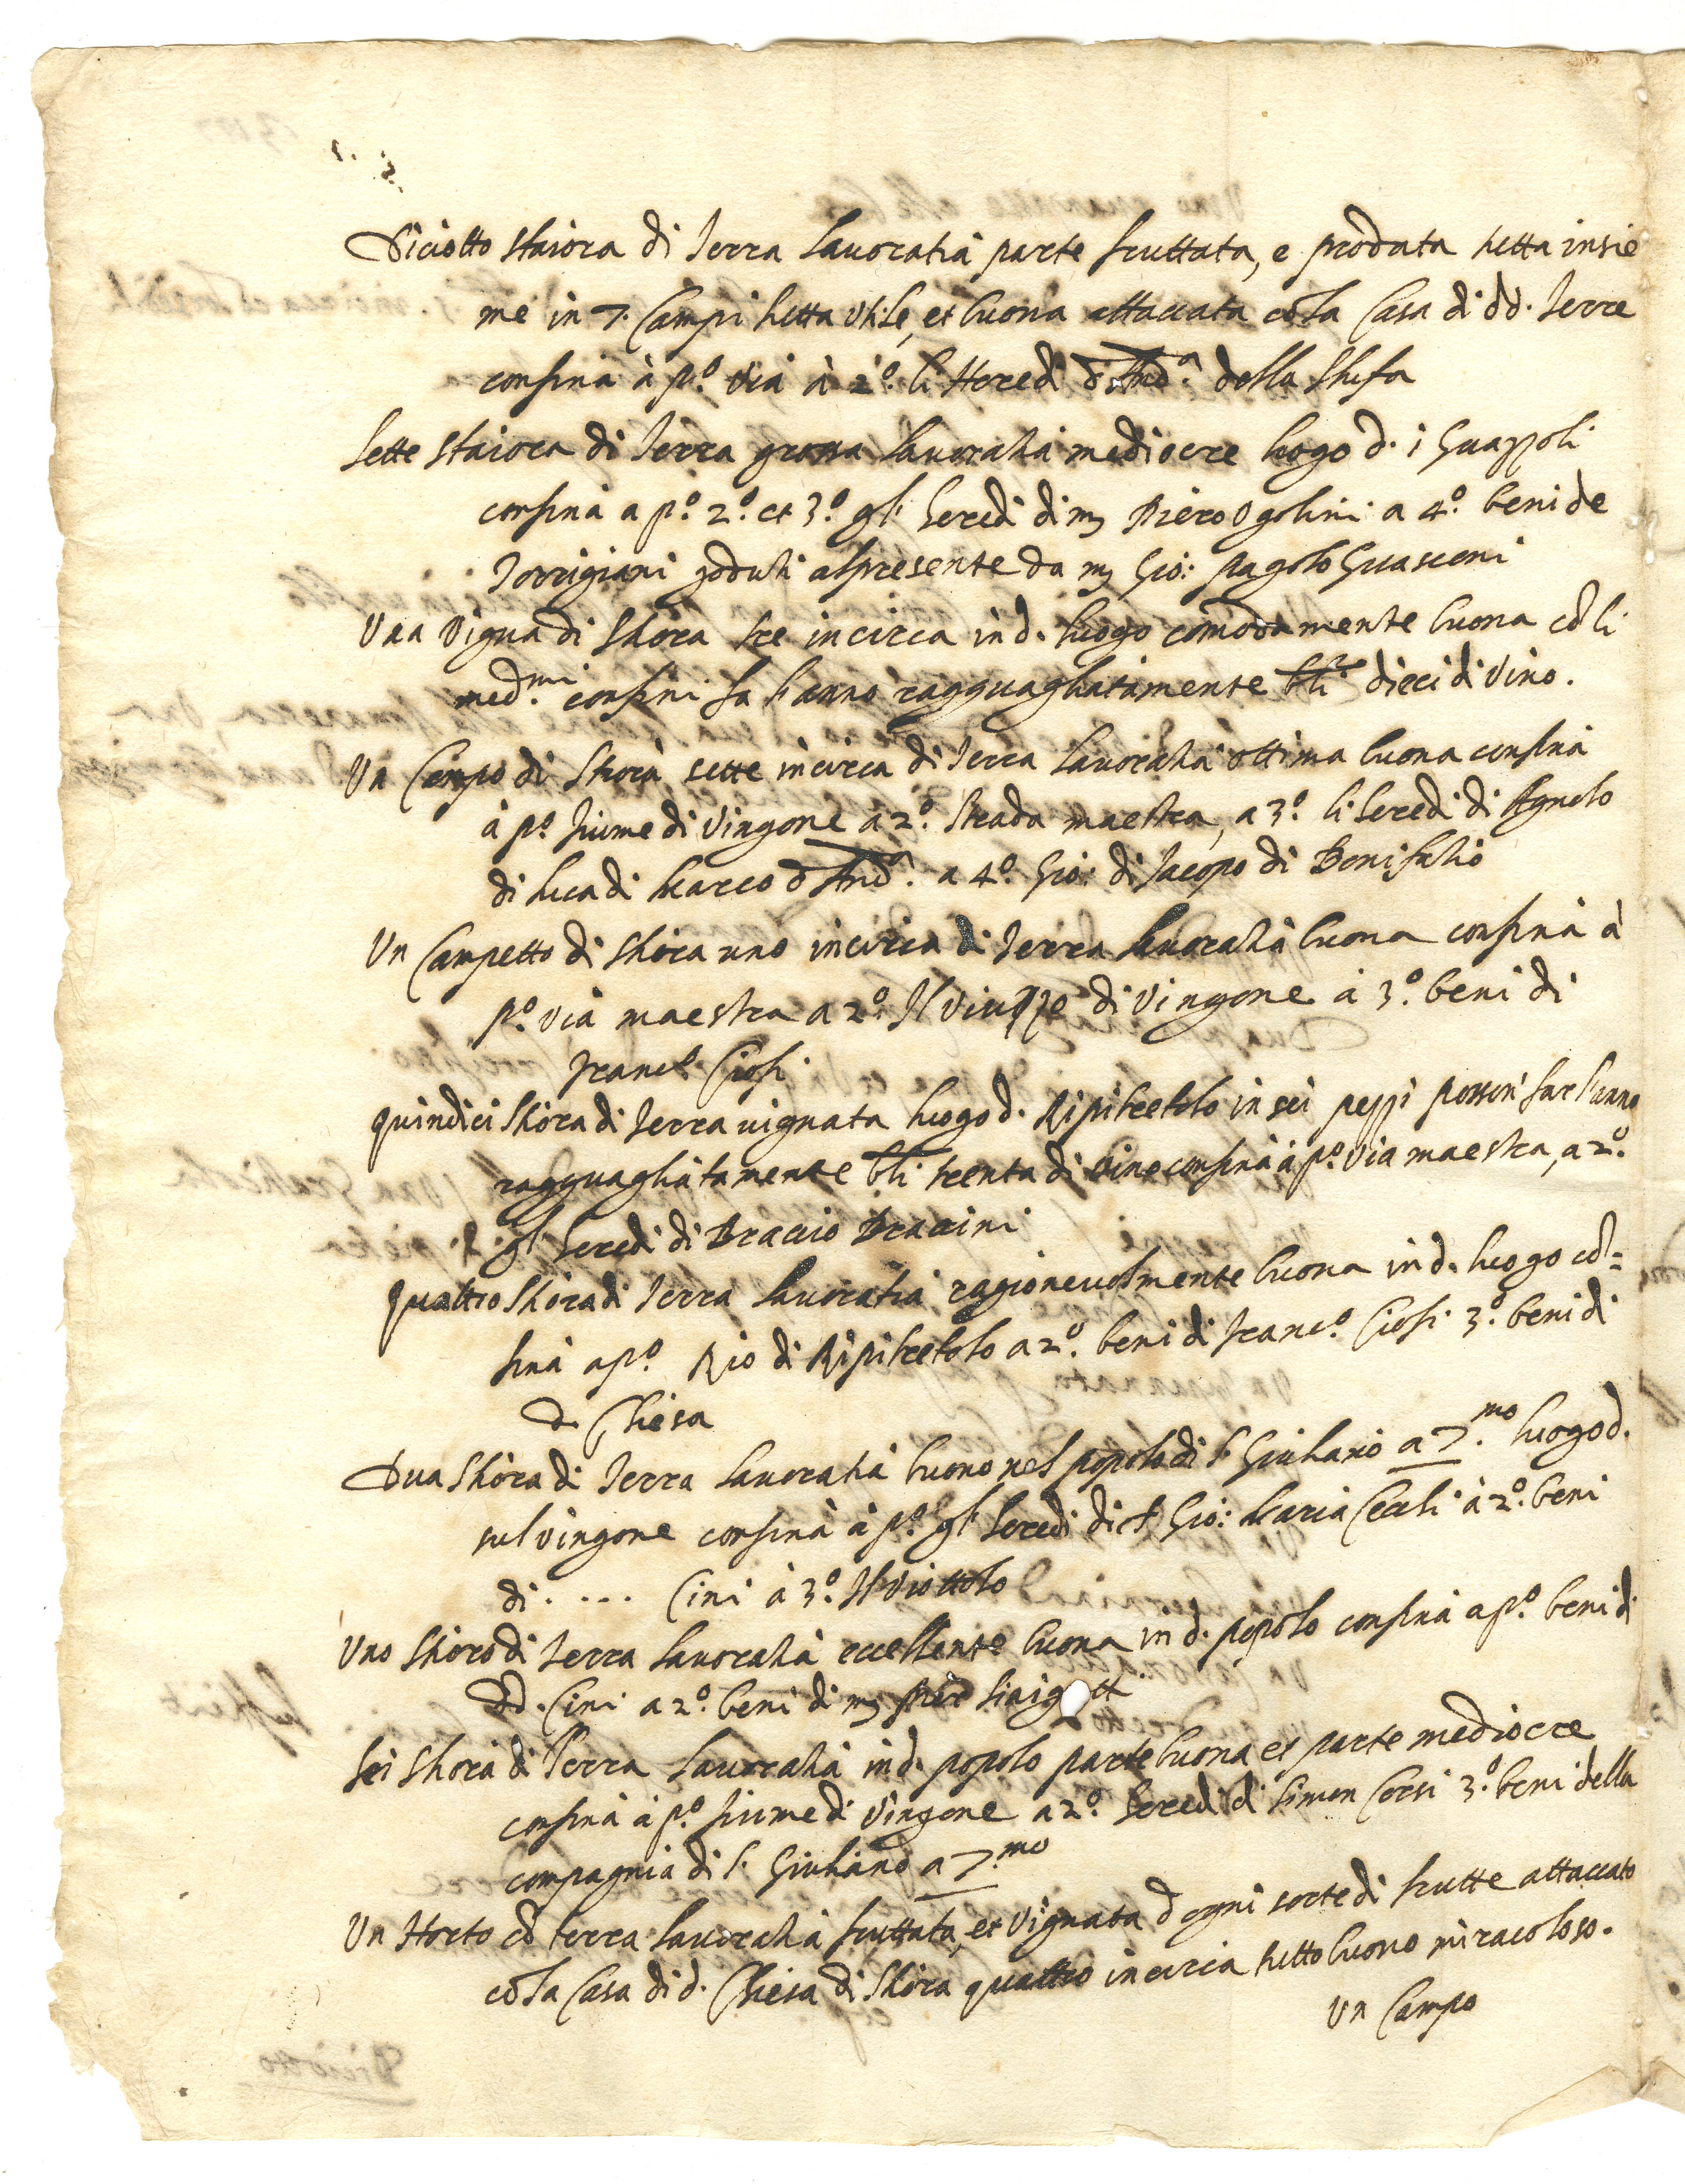 Diciotto staiora di Terra Lavoratia parte fruttata, e prodata tutta insie
me in 7. Campi tutta Utile, et buona attaccata cõ la Casa di dd. Terre
confina à p.º via à 2.º li Heredi d'And.ª della Stufa
Sette staiora di Terra grossa lavoratia mediocre luogo d. i Guazzoli
confina a p.º 2.º et 3.º gl' heredi di m Piero Ugolini a 4.º beni de
Torrigiani goduti al presente da m Gio: Pagolo Guasconi
Una Vigna di Stiora tre incirca in d. luogo comodamente buona cõ li
med.mi confini fa l'anno ragguagliatamente bli dieci di Vino.
Un Campo di Stiora sette incirca di Terra Lavoratia ottima buona confina
à p.º fiume di Vingone à 2.º Strada maestra, a 3.º li heredi di Agnolo
di Luca di Marco d'And.ª a 4.º Gio: di Jacopo di Bonifatio
Un Campetto di Stiora uno incirca di Terra lavoratia buona confina à
p.º via maestra a 2.º Il Viuzzo di Vingone à 3.º beni di
Franc.º Ciofi
Quindici Stiora di Terra vignata luogo d. Ripitretolo in sei pezzi posson' far l'anno
ragguagliatamente bli trenta di vino confina à p.º Via maestra, a 2.º
gl' heredi di Braccio Braccini
Quattro Stiora di Terra Lavoratia ragionevolmente buona in d. luogo cõ=
fina a p.º Rio di Ripitretolo a 2.º beni di Franc.º Ciofi 3.º beni di
d. Chiesa
Dua Stiora di Terra lavoratia buono nel popolo di S. Giuliano a 7.mo luogo d.
sul Vingone confina à p.º gl' heredi di S. Gio: Maria Cecchi à 2.º beni
di .... Cini à 3.º Il Viottolo
Uno Stioro di Terra lavoratia eccellente buona in d. popolo confina a p.º beni di
dd. Cini a 2.º beni di m Pier
Sei Stiora di Terra Lavoratia in d. popolo parte buona et parte mediocre
confina à p.º fiume di Vingone a 2.º heredi di Simon Corsi 3.º beni della
compagnia di S. Giuliano a 7.mo
Un Horto cõ terra lavoratia fruttata, et Vignata d'ogni sorte di frutte attaccato
cõ la Casa di d. Chiesa di Stiora quattro incirca tutto buono miracoloso.
Un Campo